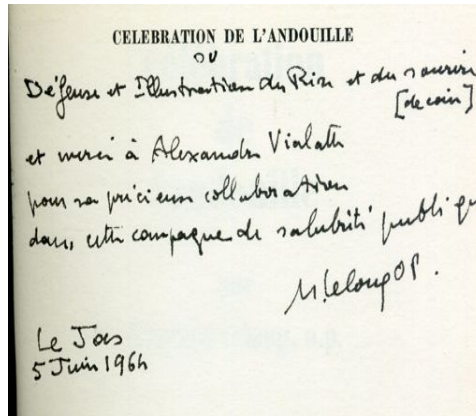 CELEBRATION DE L'ANDOUILLE
ou
Défense et Illustration du Rire et du sourire
[de coin]
et merci à Alexandre Vialatte
pour sa précieuse collaboration
dans cette campagne de salubrité publiqu
M. Lelong OP.
Le Jas
5 Juin 1964